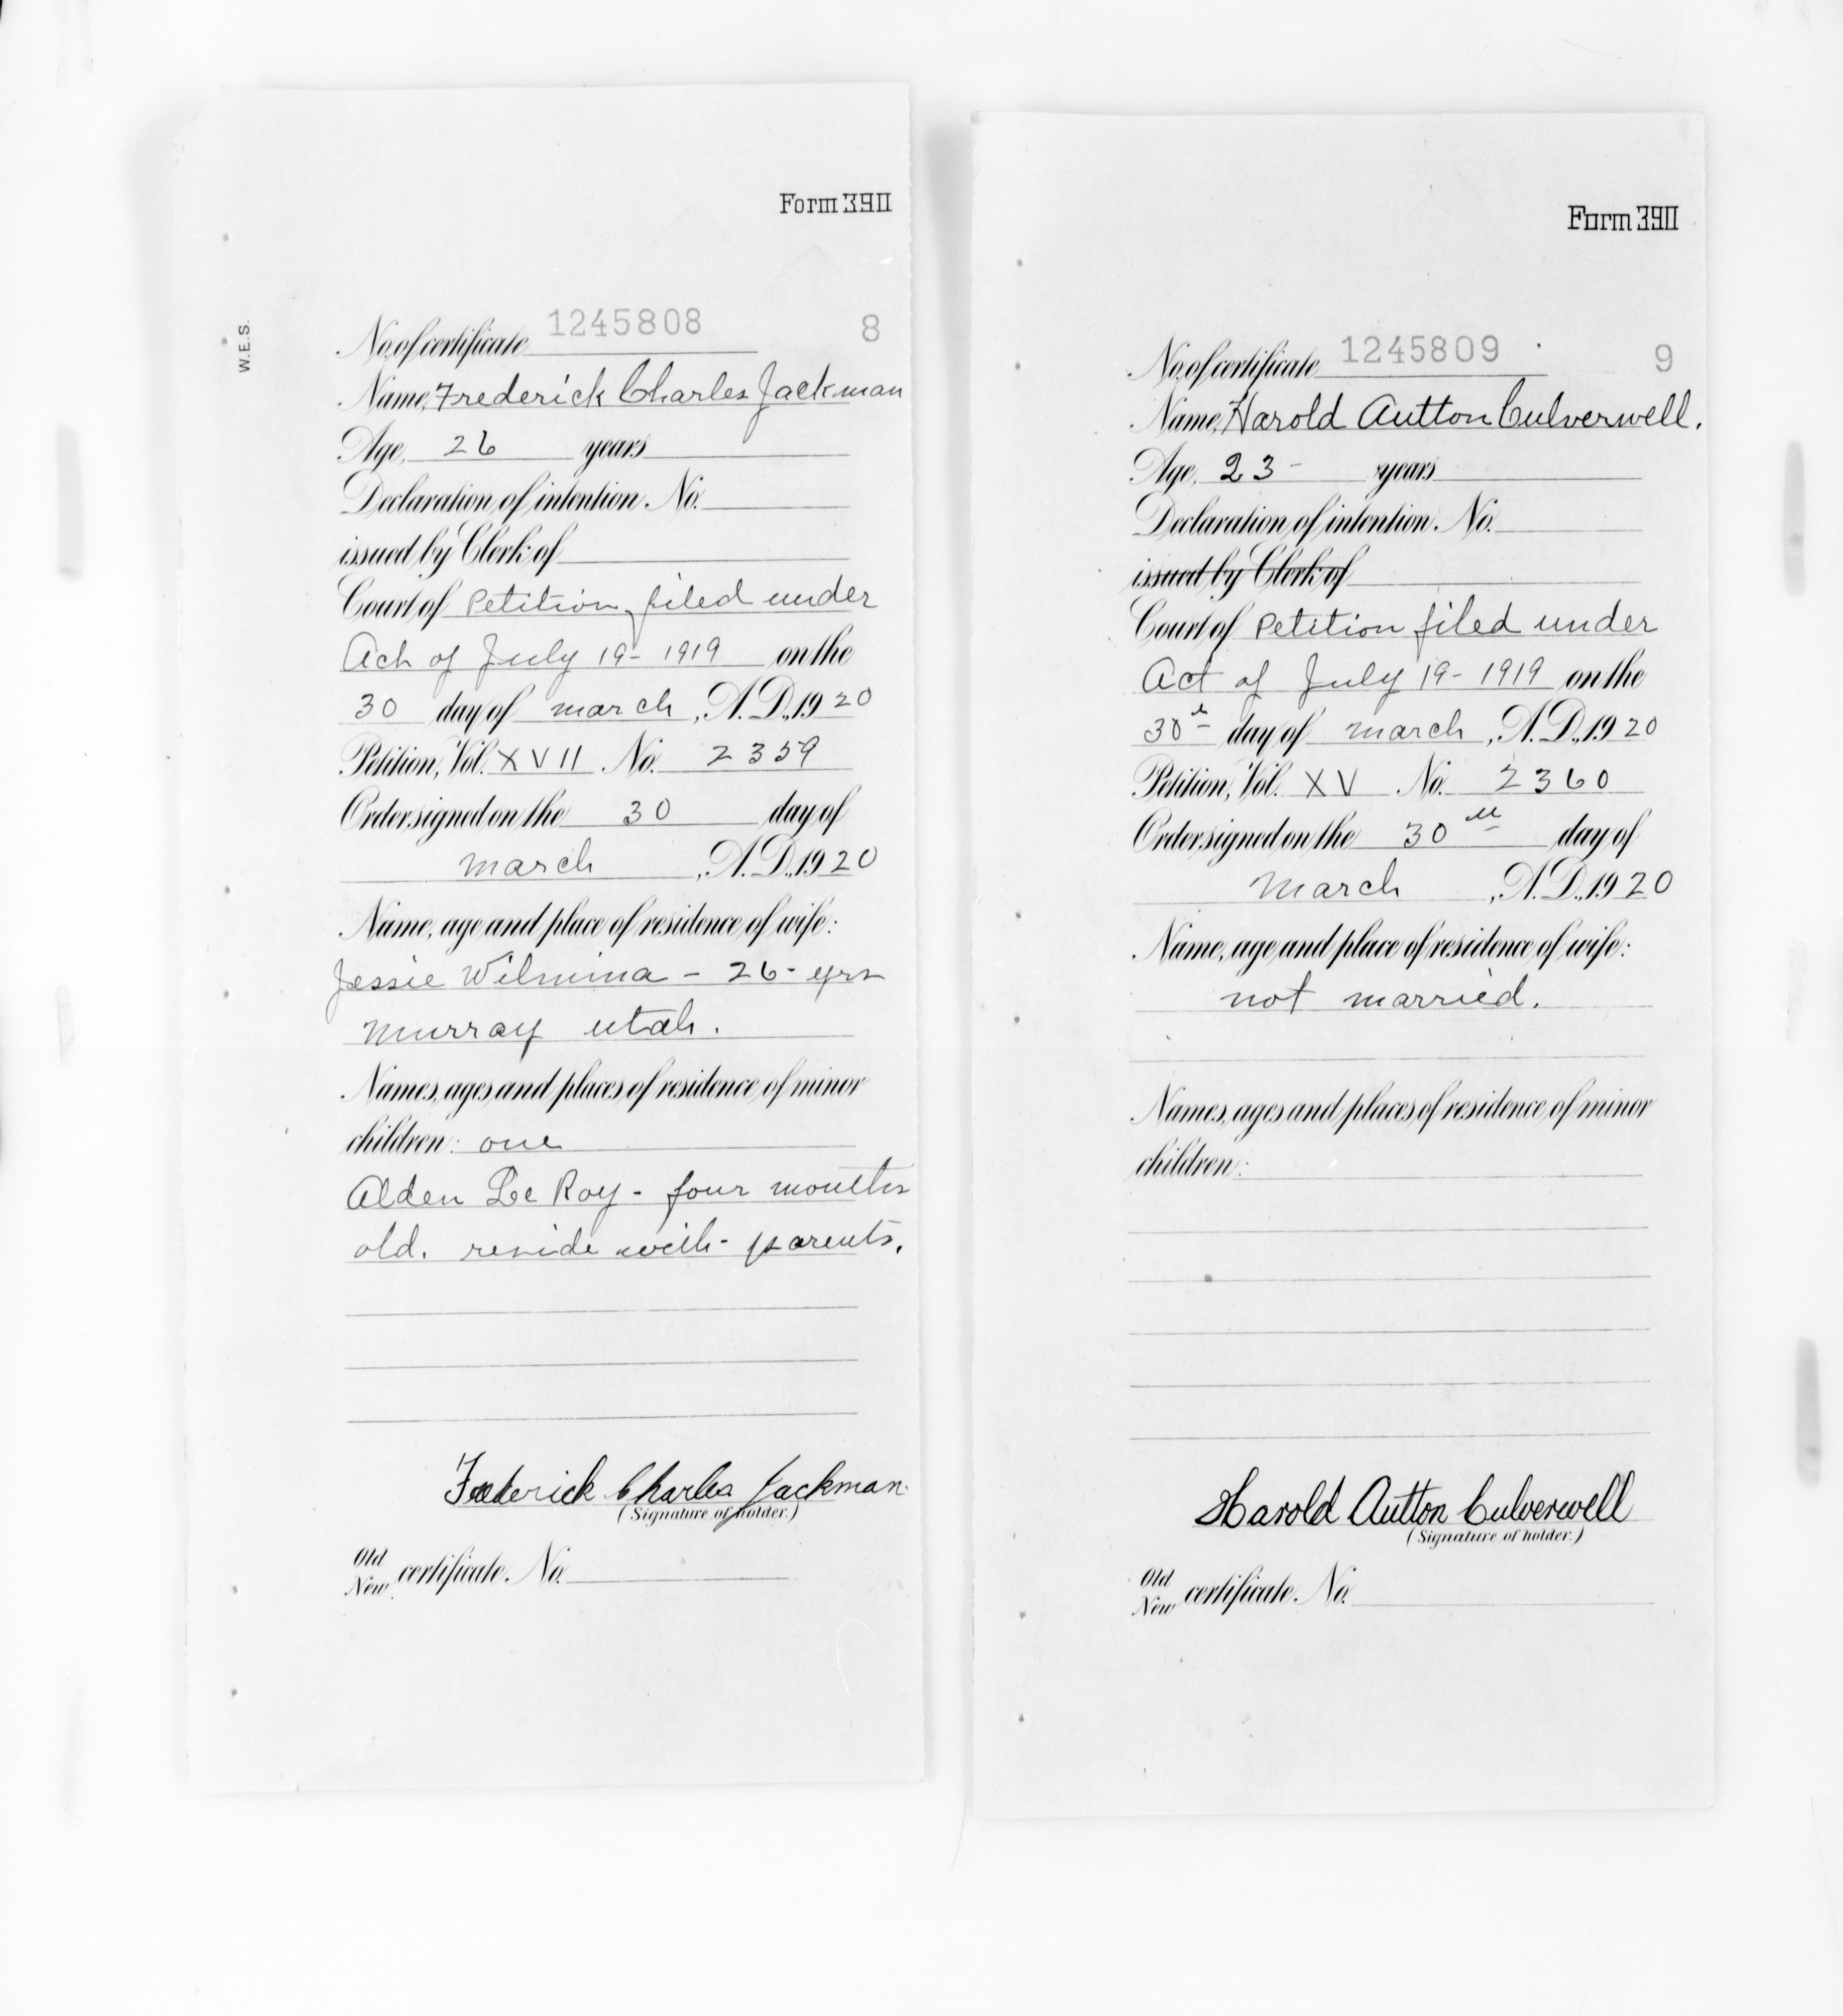 Form 390
W.E.S.
No. of certificate 1245808 8
Name, Frederick Charles Jackman
Age, 26 years
Declaration of intention No.
issued by Clerk of
Court of Petition filed under
Act of July 19- 1919 on the
30 day of march, A.D., 1920
Petition, Vol. XVII No. 2359
Order signed on the 30 day of
march, A.D., 1920
Name, age and place of residence of wife:
Jessie Wilmina - 26- yrs
murray utah.
Names, ages and places of residence of minor
children: one
Alden Le Roy - four months
old. reside with- parents.
Frederick Charles Jackman
(Signature of holder.)
Old
New certificate. No.
Form 390
No. of certificate 1245809 9
Name, Harold Autton Culverwell.
Age, 23- years
Declaration of intention No.
issued by Clerk of
Court of Petition filed under
Act of July 19- 1919 on the
30th day of march, A.D., 1920
Petition, Vol. XV No. 2360
Order signed on the 30th day of
march, A.D., 1920
Name, age and place of residence of wife:
not married.
Names, ages and places of residence of minor
children:
Harold Autton Culverwell
(Signature of holder.)
Old
New certificate. No.